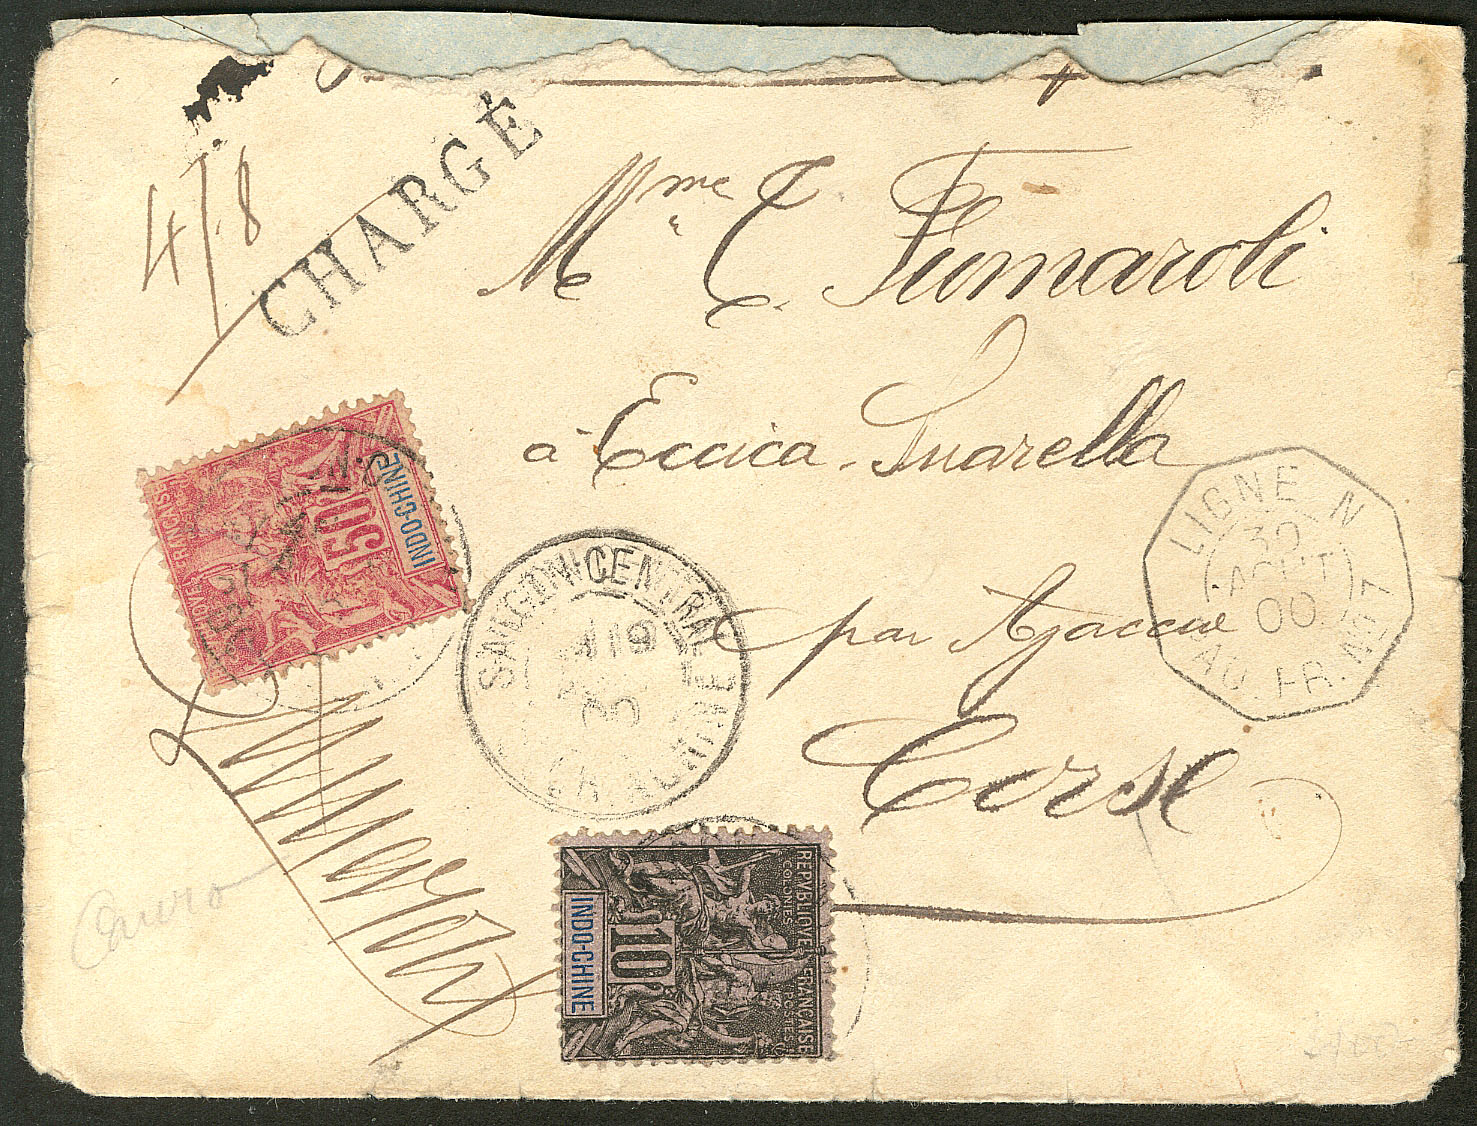 4/8
CHARGÉ
Mme C. Fumaroli
à Eccica-Suarella
par Ajaccio
Corse
LIGNE N
30
AOUT
00
PAQ. FR. No 7
INDO-CHINE
50
SAIGON-CENTRAL
00
COCHINCHINE
Fumaroli
Cauro
REPVBLIQVE FRANÇAISE
COLONIES POSTES
10
INDO-CHINE